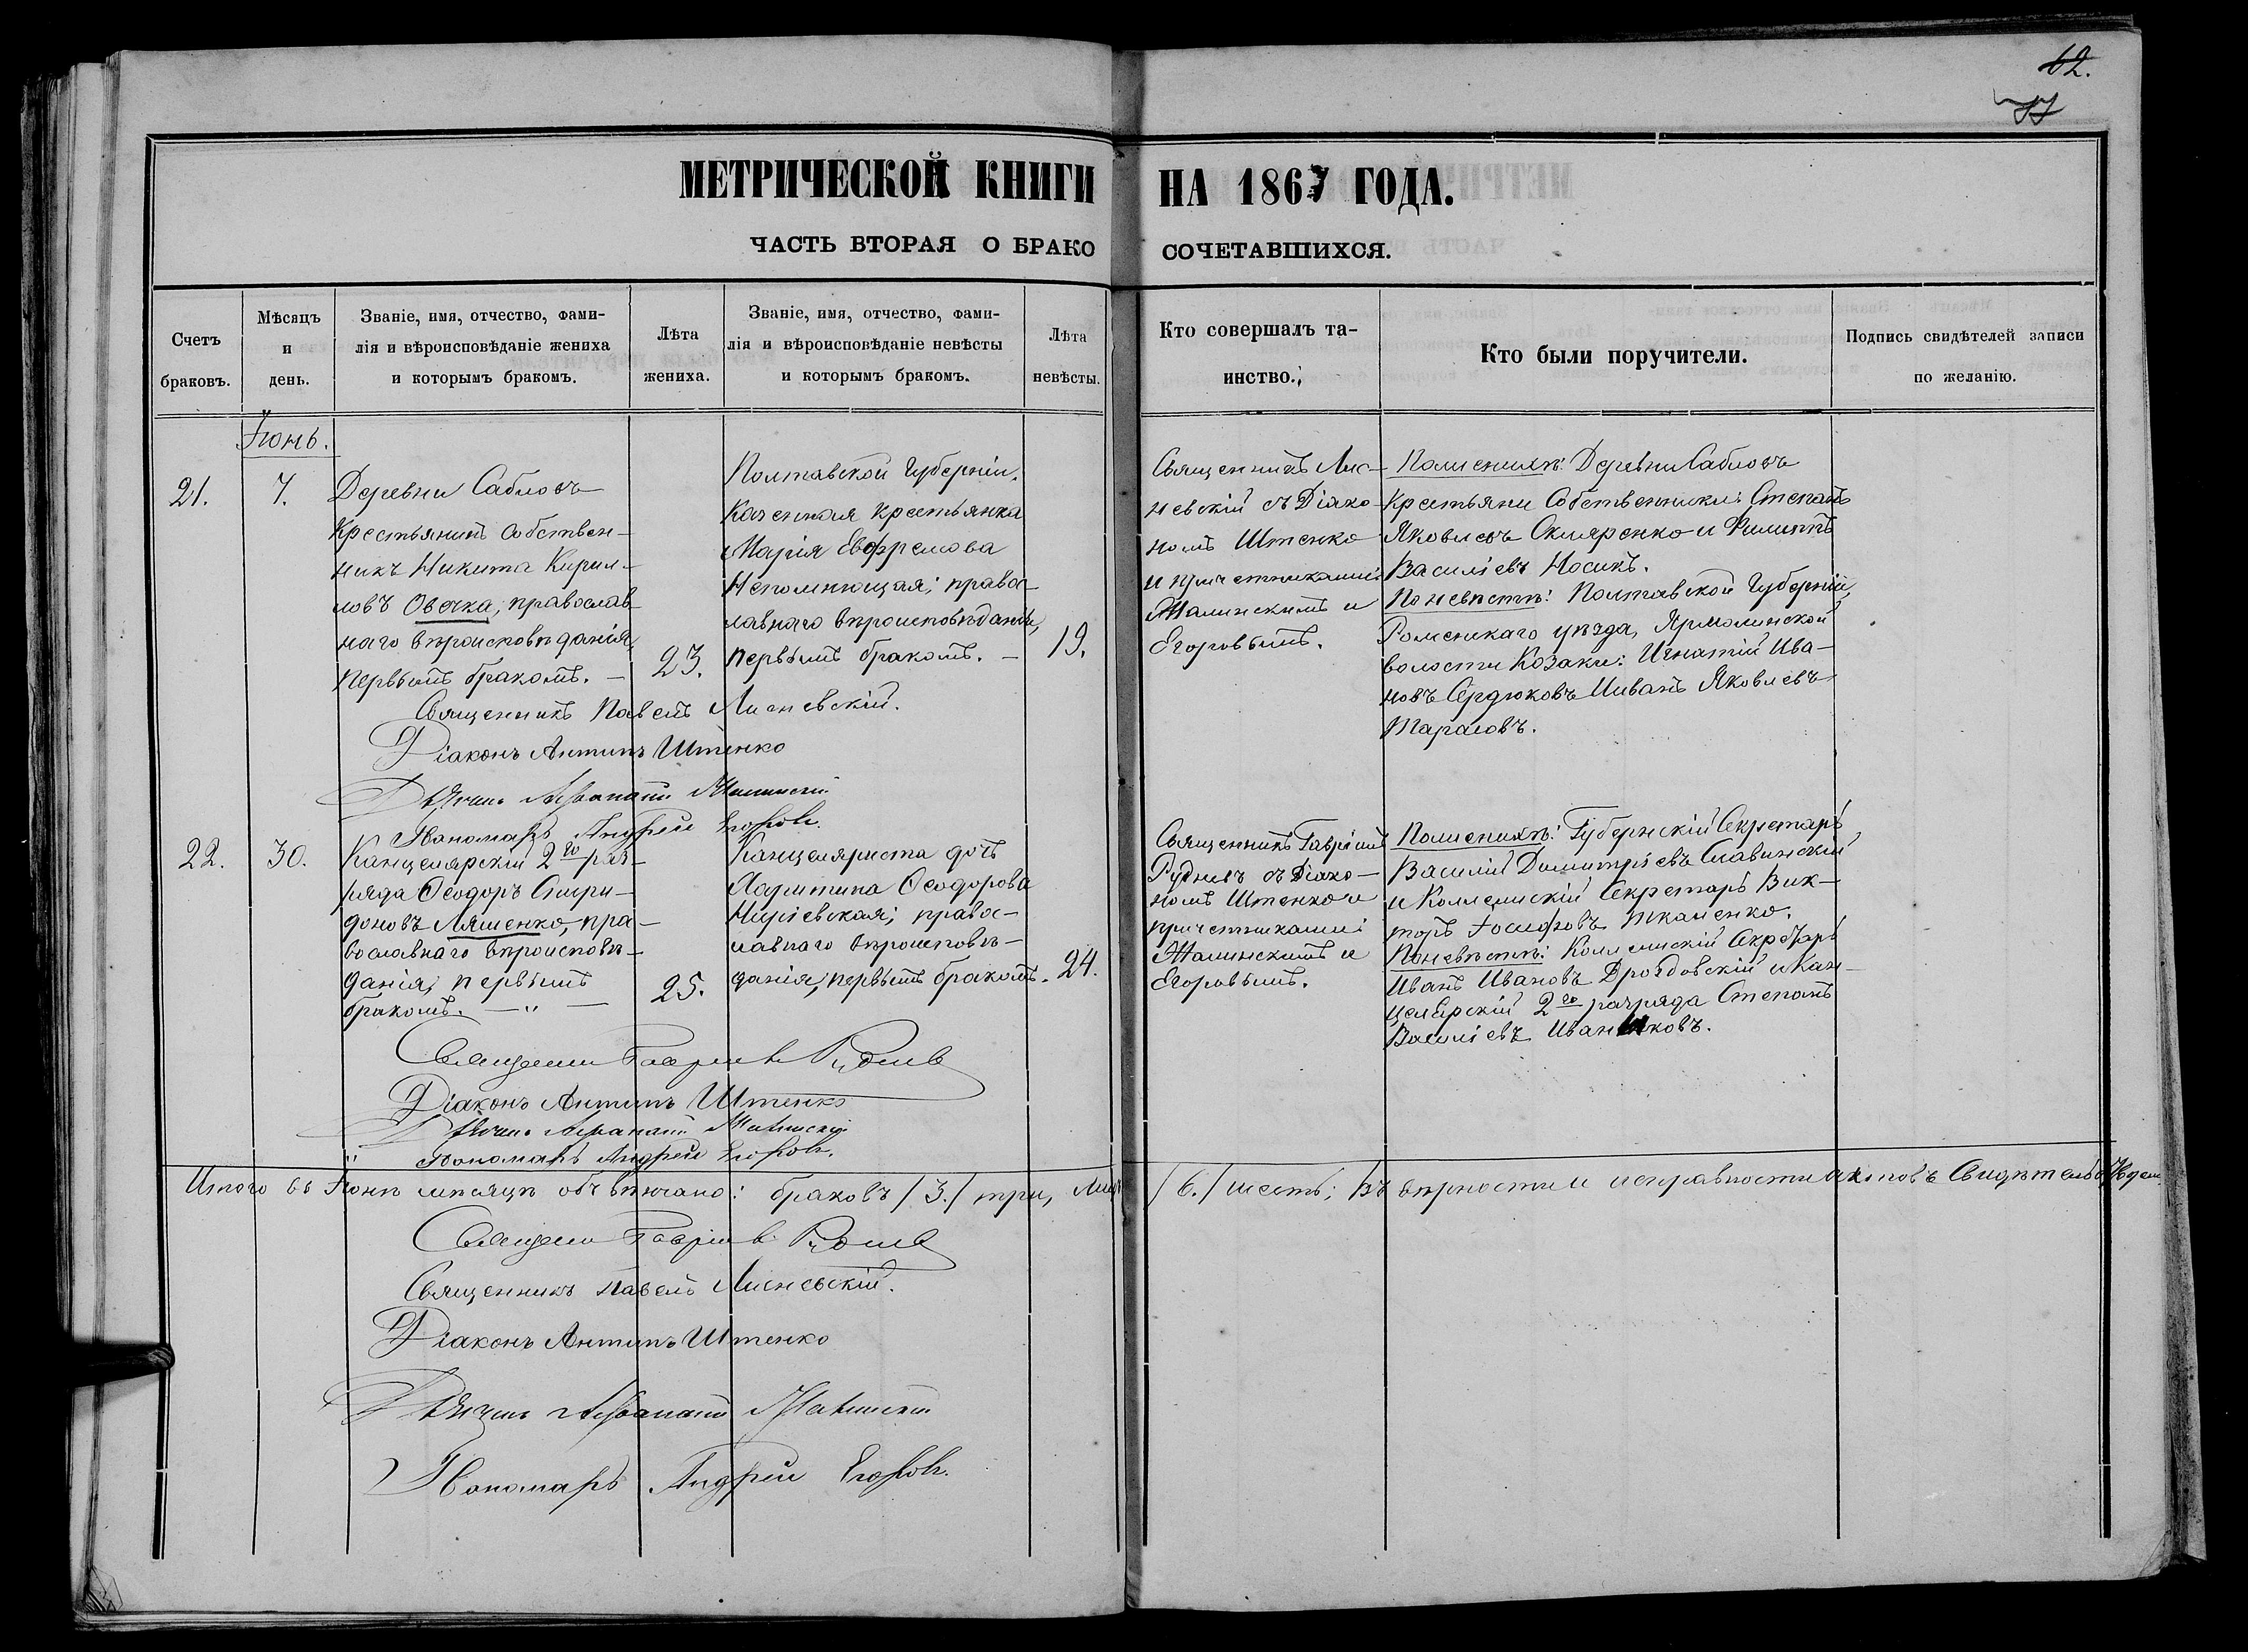 62.
МЕТРИЧЕСКОЙ КНИГИ НА 1867 ГОДА.
ЧАСТЬ ВТОРАЯ О БРАКОСОЧЕТАВШИХСЯ.
Счетъ
браковъ.
Мѣсяцъ
и
день.
Званіе, имя, отчество, фами-
лія и вѣроисповѣданіе жениха
и которымъ бракомъ.
Лѣта
жениха.
Званіе, имя, отчество, фами-
лія и вѣроисповѣданіе невѣсты
и которымъ бракомъ.
Лѣта
невѣсты.
Кто совершалъ та-
инство.
Кто были поручители.
Подпись свидѣтелей записи
по желанію.
Іюнь.
21.
7.
Деревни Сабловъ
Крестьянинъ собствен-
никъ Никита Кирил-
ловъ Овечка, православ-
наго вѣроисповѣданія,
первымъ бракомъ. —
23.
Полтавской Губерніи,
Казенная крестьянка
Марія Евфремова
Непомнющая; право-
славнаго вѣроисповѣданія,
первымъ бракомъ. —
19.
Священникъ Лис-
невскій съ Діако-
номъ Штенко
и причетниками:
Жалинскимъ и
Егоровымъ.
По женихѣ: Деревни Сабловъ
Крестьяне Собственники: Степанъ
Яковлевъ Скляренко и Филиппъ
Василіевъ Носикъ.
По невѣстѣ: Полтавской Губерніи,
Роменскаго уѣзда, Ярмолинской
волости Козаки: Игнатій Ива-
новъ Сердюковъ и Иванъ Яковлевъ
Тарасовъ.
Священникъ Павелъ Лисневскій.
Діаконъ Антипъ Штенко
Дьячекъ Афанасій Жалинскій
Пономарь Андрей Егоровъ.
22.
30.
Канцелярскій 2го раз-
ряда Ѳеодоръ Спири-
доновъ Ляшенко, пра-
вославнаго вѣроисповѣ-
данія, первымъ
бракомъ. — " —
25.
Канцеляриста дочь
Харитина Ѳеодорова
право-
славнаго вѣроисповѣ-
данія, первымъ бракомъ.
24.
Священникъ Гавріилъ
Рудневъ съ Діако-
номъ Штенко и
причетниками:
Жалинскимъ и
Егоровымъ.
По женихѣ: Губернскій Секретарь
Василій Димитріевъ Славинскій
и Коллежскій Секретарь Вик-
торъ Іосифовъ Ткаченко.
По невѣстѣ: Коллежскій Секретарь
Иванъ Ивановъ Дроздовскій и Кан-
целярскій 2го разряда Степанъ
Василіевъ
Священникъ Гавріилъ Рудневъ
Діаконъ Антипъ Штенко
Дьячекъ Афанасій Жалинскій
Пономарь Андрей Егоровъ.
Итого въ Іюнѣ мѣсяцѣ обвѣнчано: браковъ /3./ три, лицъ /6./ шесть; въ вѣрности и исправности актовъ
Священникъ Гавріилъ Рудневъ
Священникъ Павелъ Лисневскій.
Діаконъ Антипъ Штенко
Дьячекъ Афанасій Жалинскій
Пономарь Андрей Егоровъ.